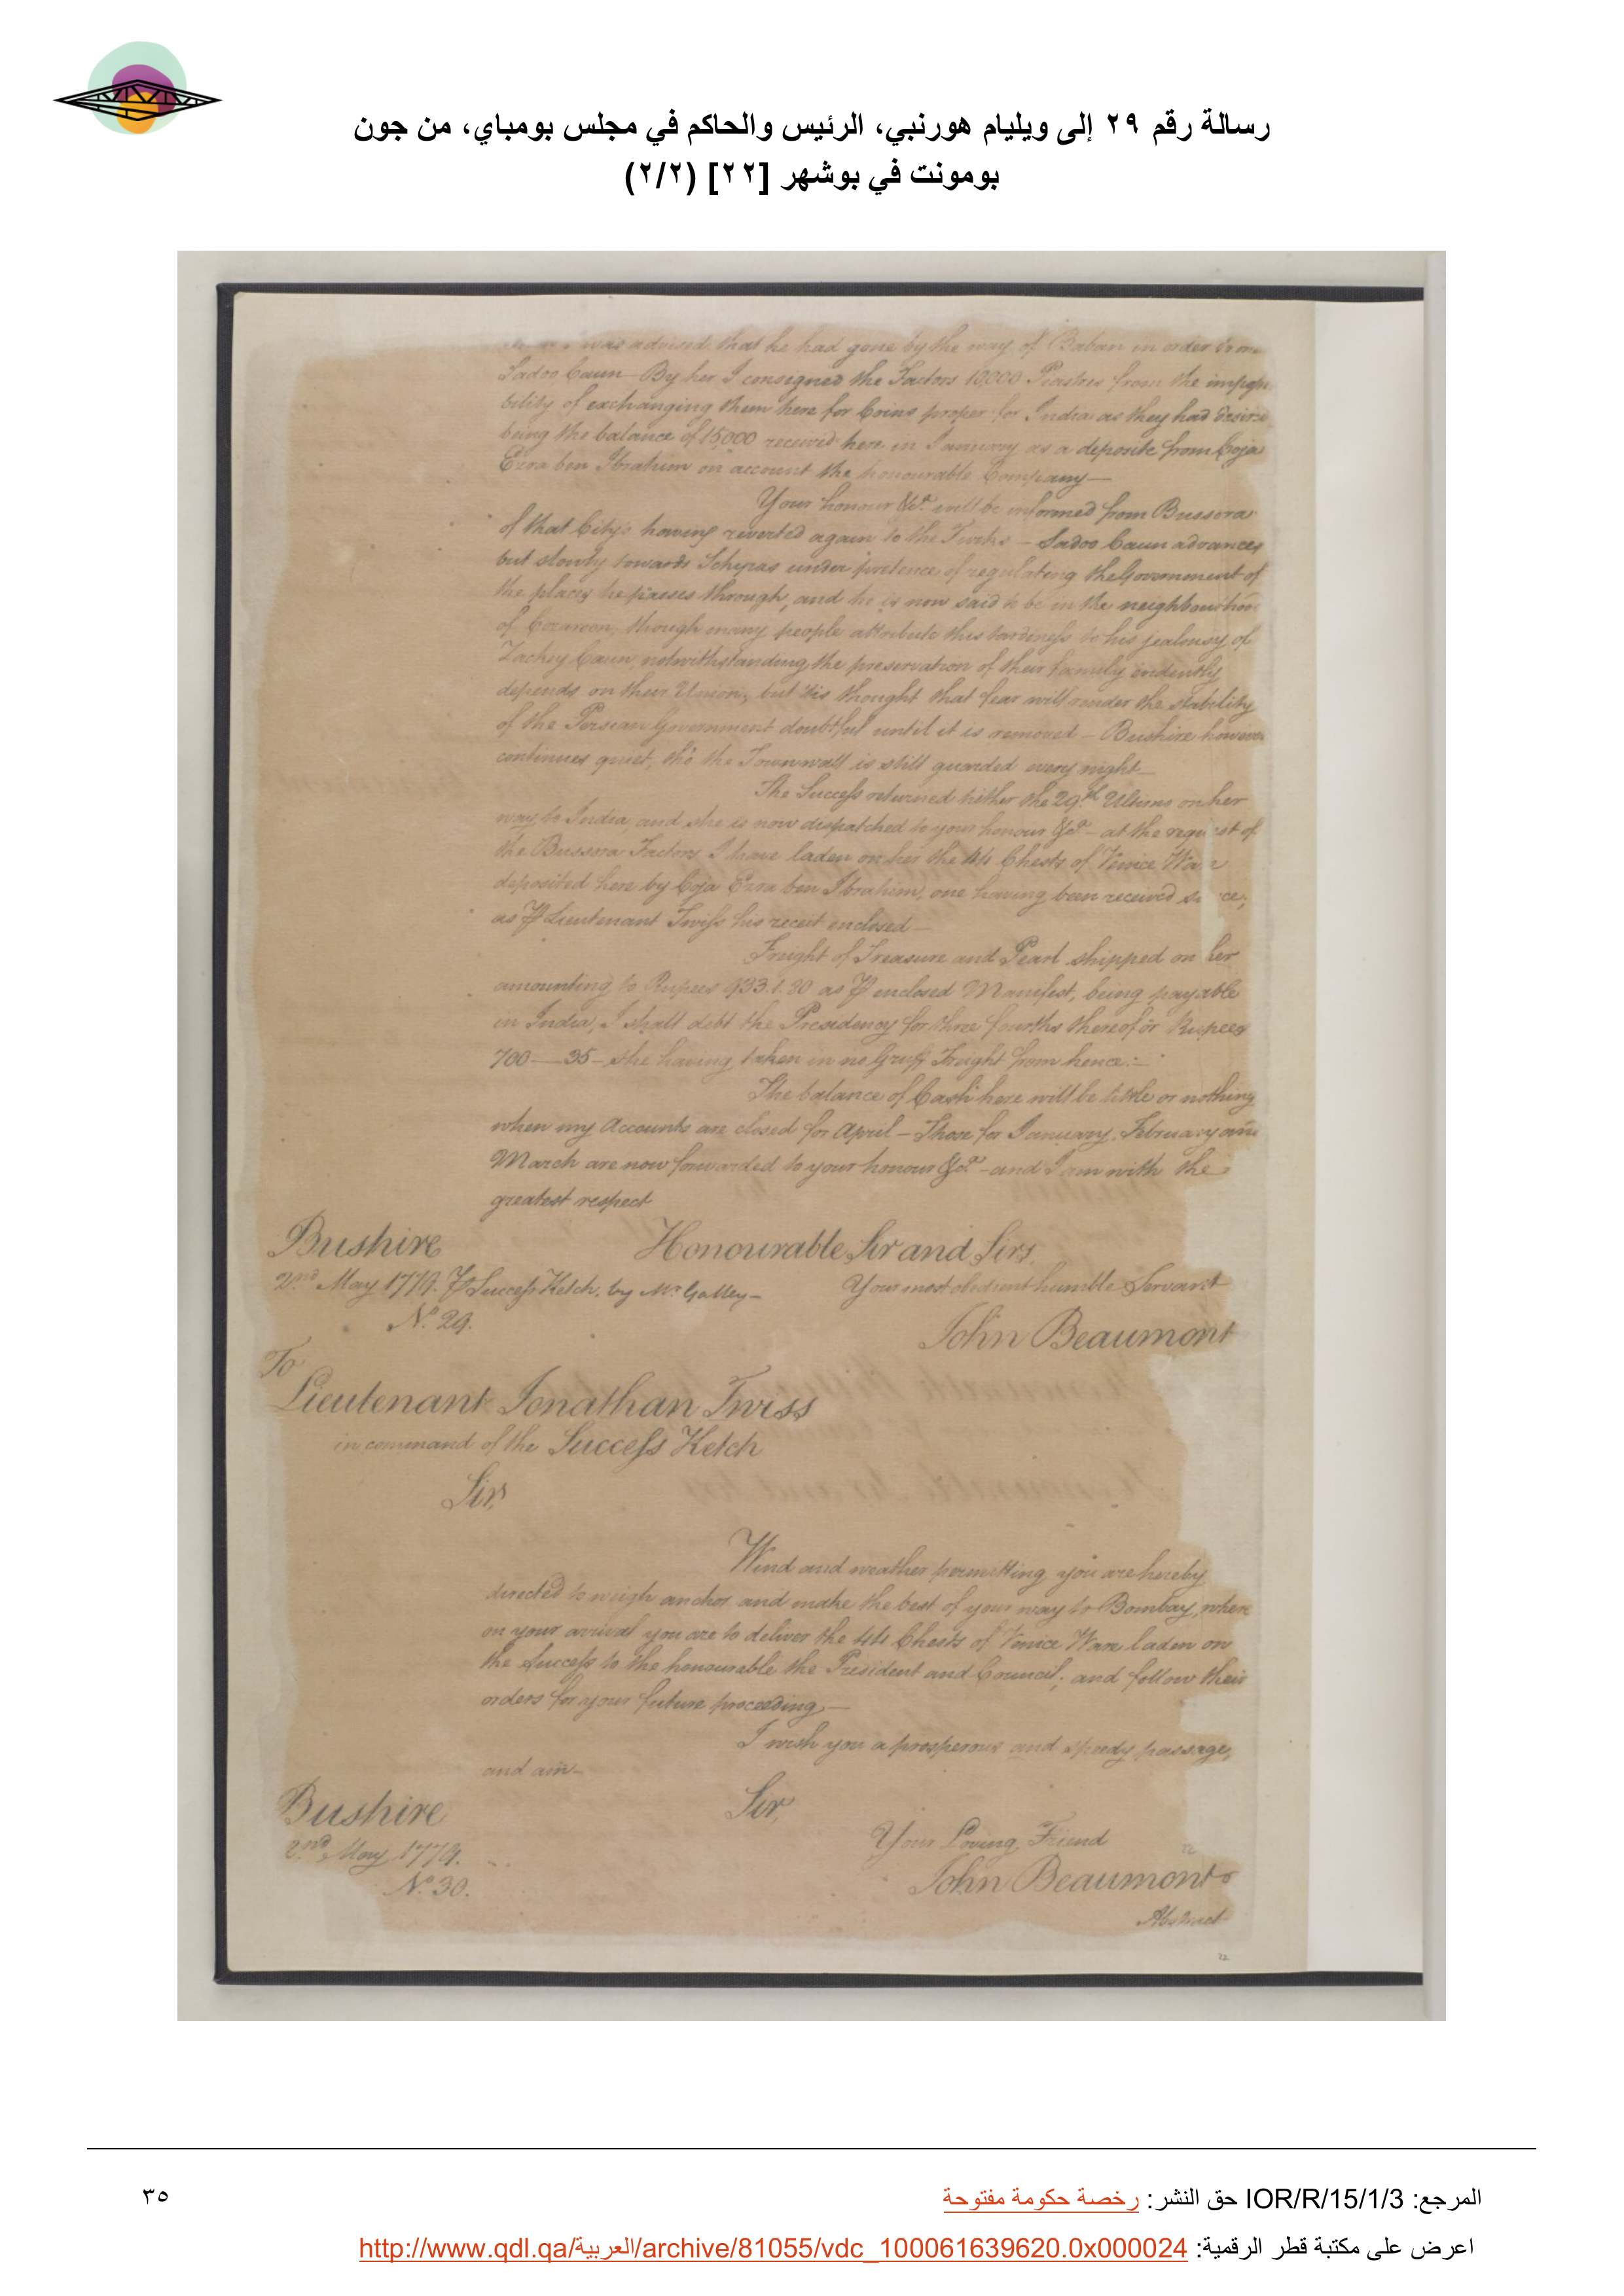 رسالة رقم ٢٩ إلى ويليام هورنبي، الرئيس والحاكم في مجلس بومباي، من جون
بومونت في بوشهر [٢٢] (٢/٢)
was advised that he had gone by the way of Baban in order to
Sadoo Caun — By her I consigned the Factors 10,000 Piastres from the impossi
bility of exchanging them here for Coins proper for India as they had desired
being the balance of 15,000 received here in January as a deposite from Coja
Ezra ben Ibrahim on account the honourable Company —
Your honour &ca. will be informed from Bussora
of that City's having reverted again to the Turks — Sadoo Caun advances
but slowly towards Schyras under pretence of regulating the Government of
the places he passes through, and he is now said to be in the neighbourhood
of though many people attribute this tardiness to his jealousy of
Zachey Caun, notwithstanding the preservation of their family evidently
depends on their Union, but 'tis thought that fear will render the stability
of the Persian Government doubtful until it is removed — Bushire however
continues quiet, tho' the Town wall is still guarded every night —
The Success returned hither the 29th. Ultimo on her
way to India, and she is now dispatched to your honour &ca. — at the request of
the Bussora Factors I have laden on her the 44 Chests of Venice Ware
deposited here by Coja Ezra ben Ibrahim, one having been received since;
as ⅌ Lieutenant Twiss his receit enclosed —
Freight of Treasure and Pearl shipped on her
amounting to Rupees 933.1.80 as ⅌ enclosed Manifest, being payable
in India, I shall debt the Presidency for three fourths thereof or Rupees
700 — 35 — she having taken in no Gruff Freight from hence: —
The balance of Cash here will be little or nothing
when my Accounts are closed for April — Those for January, February and
March are now forwarded to your honour &ca. — and I am with the
greatest respect
Bushire Honourable Sir and Sirs,
2nd May 1779. ⅌ Success Ketch, by Mr. Galley — Your most obedient humble Servant
No. 29. John Beaumont
To
Lieutenant Jonathan Twiss
in command of the Success Ketch
Sir,
Wind and weather permitting you are hereby
directed to weigh anchor and make the best of your way to Bombay, where
on your arrival you are to deliver the 44 Chests of Venice Ware laden on
the Success to the honourable the President and Council; and follow their
orders for your future proceeding —
I wish you a prosperous and speedy passage,
and am —
Bushire Sir,
2nd. May 1779. Your Loving Friend
No. 30. John Beaumont
Abstract
المرجع: IOR/R/15/1/3 حق النشر: رخصة حكومة مفتوحة ٣٥
اعرض على مكتبة قطر الرقمية: http://www.qdl.qa/العربية/archive/81055/vdc_100061639620.0x000024